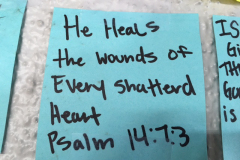 He Heals
the wounds of
Every shatterd
Heart
Psalm 14:7:3
IS
Gi
is